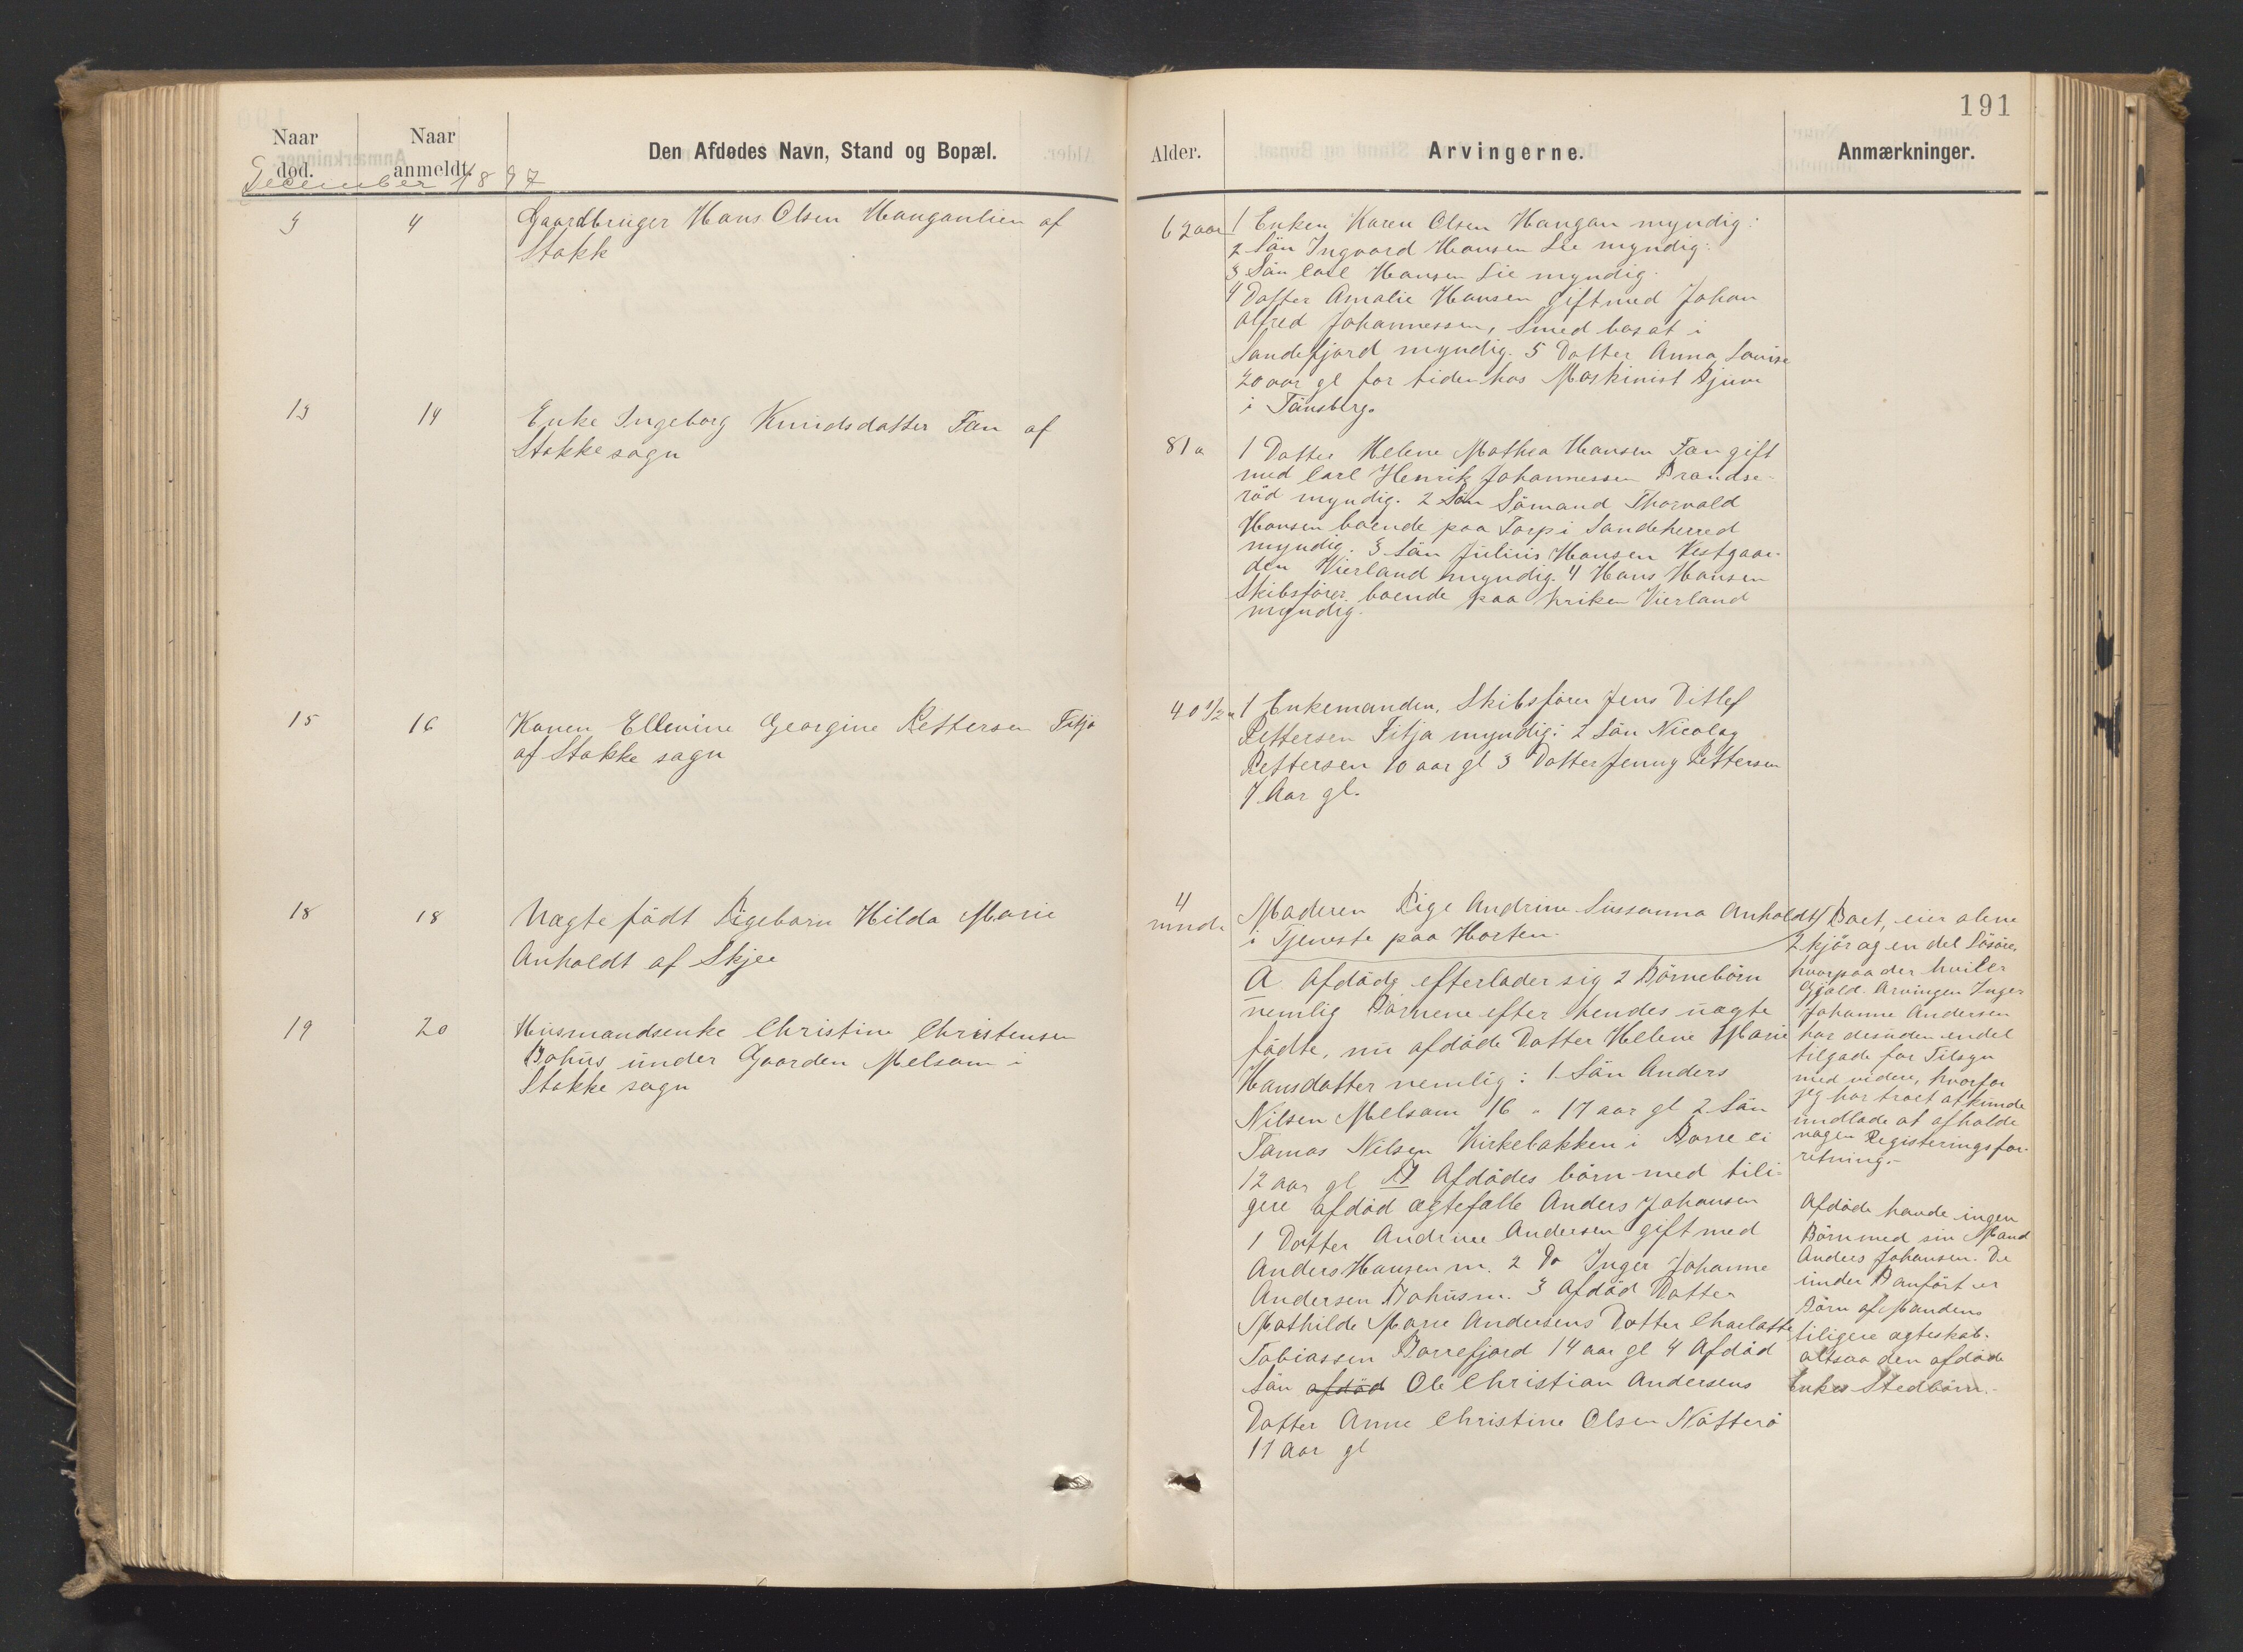 191
Naar død.
Naar anmeldt.
Den Afdødes Navn, Stand og Bopæl.
Alder.
Arvingerne.
Anmærkninger.
December 1897
3
4
Gaardbruger Hans Olsen Hauganlien af
Stokk
62 aar
1 Enken Karen Olsen Haugan myndig:
2 Sön Ingvard Hansen Lie myndig.
3 Sön Carl Hansen Lie myndig.
4 Datter Amalie Hansen gift med Johan
Alfred Johannessen, Smed bosat i
Sandefjord myndig. 5 Datter Anna Lovise
20 aar gl for tiden hos Maskinist Bjune
i Tönsberg.
13
14
Enke Ingeborg Knudsdatter Fan af
Stokke sogn
81 a
1 Datter Helene Mathea Hansen Fan gift
med Carl Henrik Johannessen Brandse-
röd myndig. 2 Sön Sömand Thorvald
Hansen boende paa Torp i Sandeherred
myndig. 3 Sön Julius Hansen Vestgaar-
den Vierland myndig. 4 Hans Hansen
Skibsförer boende paa Kriken Vierland
myndig.
15
16
Konen Ellevine Georgine Pettersen Fitja
af Stokke sogn
40 1/2 a
1 Enkemanden, Skibsfører Jens Ditlef
Pettersen Fitja myndig: 2 Sön Nicolay
Pettersen 10 aar gl 3 Datter Jenny Pettersen
7 Aar gl.
18
18
Uægte födt Pigebarn Hilda Marie
Anholdt af Skjee
4
mnd.
Moderen Pige Andrine Sussanna Anholdt
i Tjeneste paa Horten.
19
20
Husmandsenke Christine Christensen
Bohus under Gaarden Melsom i
Stokke sogn
A. Afdöde efterlader sig 2 Börnebörn
nemlig Börnene efter hendes uægte
födte, nu afdöde Datter Helene Marie
Hansdatter nemlig: 1. Sön Anders
Nilsen Melsom 16 a 17 aar gl 2 Sön
Tomas Nilsen Kirkebakken i Borre ei
12 aar gl B Afdödes börn med tili-
gere afdöd ægtefælle Anders Johansen
1 Datter Andrine Andersen gift med
Anders Hansen m. 2 Do Inger Johanne
Andersen Bohus m. 3 Afdöd Datter
Mathilde Marie Andersens Datter Charlotte
Tobiassen Borrefjord 14 aar gl 4 Afdöd
Sön afdöd Ole Christian Andersens
Datter Anne Christine Olsen Nötterö
11 Aar gl
Boet, eier alene
2 kjör og en del Lösöre,
hvorpaa der hviler
Gjæld. Arvingen Inger
Johanne Andersen
har desuden endel
tilgode for Tilsyn
med videre, hvorfor
jeg har troet at kunde
undlade at afholde
nogen Registeringsfor-
retning.-
Afdöde havde ingen
Börn med sin Mand
Anders Johansen. De
under B anfört er
Börn af Mandens
tiligere ægteskab.
altsaa den afdöde
Enkes Stedbörn.-